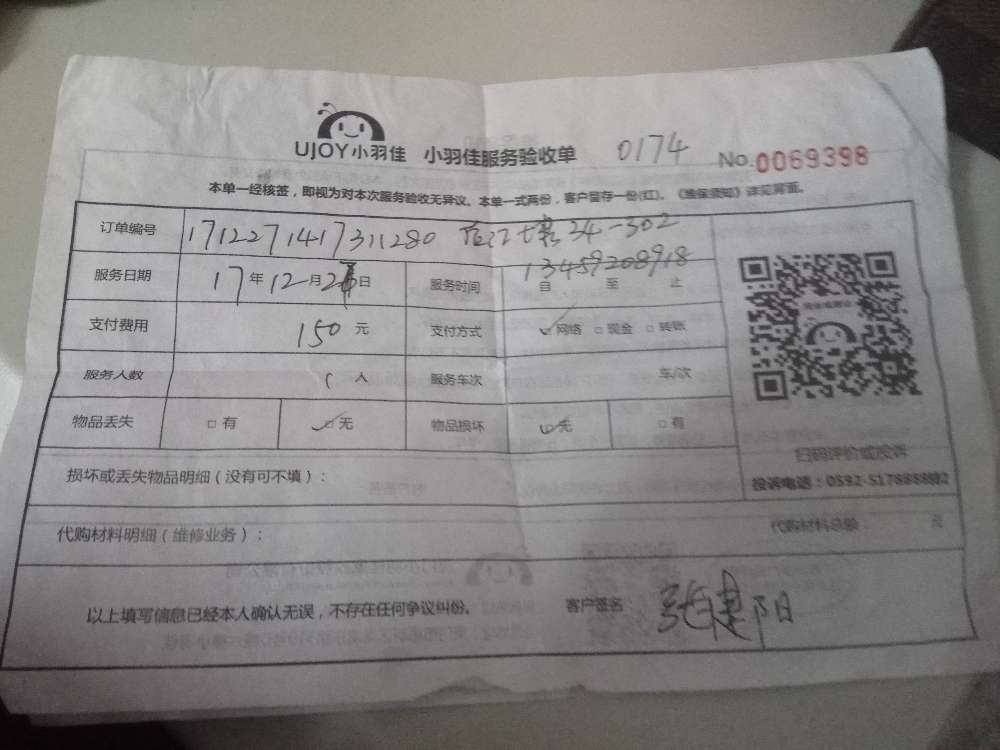 UJOY小羽佳 小羽佳服务验收单 0174 No.0069398
本单一经核签，即视为对本次服务验收无异议。本单一式两份，客户留存一份(红)。《维保须知》详见背面。
订单编号 1712271417311280 34-302
13459208918
服务日期 17年12月2日 服务时间 自 至 止
支付费用 150元 支付方式 网络 □现金 □转账
服务人数 人 服务车次 车/次
物品丢失 □有 无 物品损坏 无 □有
扫码评价或投诉
损坏或丢失物品明细（没有可不填）：
投诉电话：0592-5178888
代购材料明细（维修业务）： 代购材料总额 元
以上填写信息已经本人确认无误，不存在任何争议纠份。 客户签名 张建阳